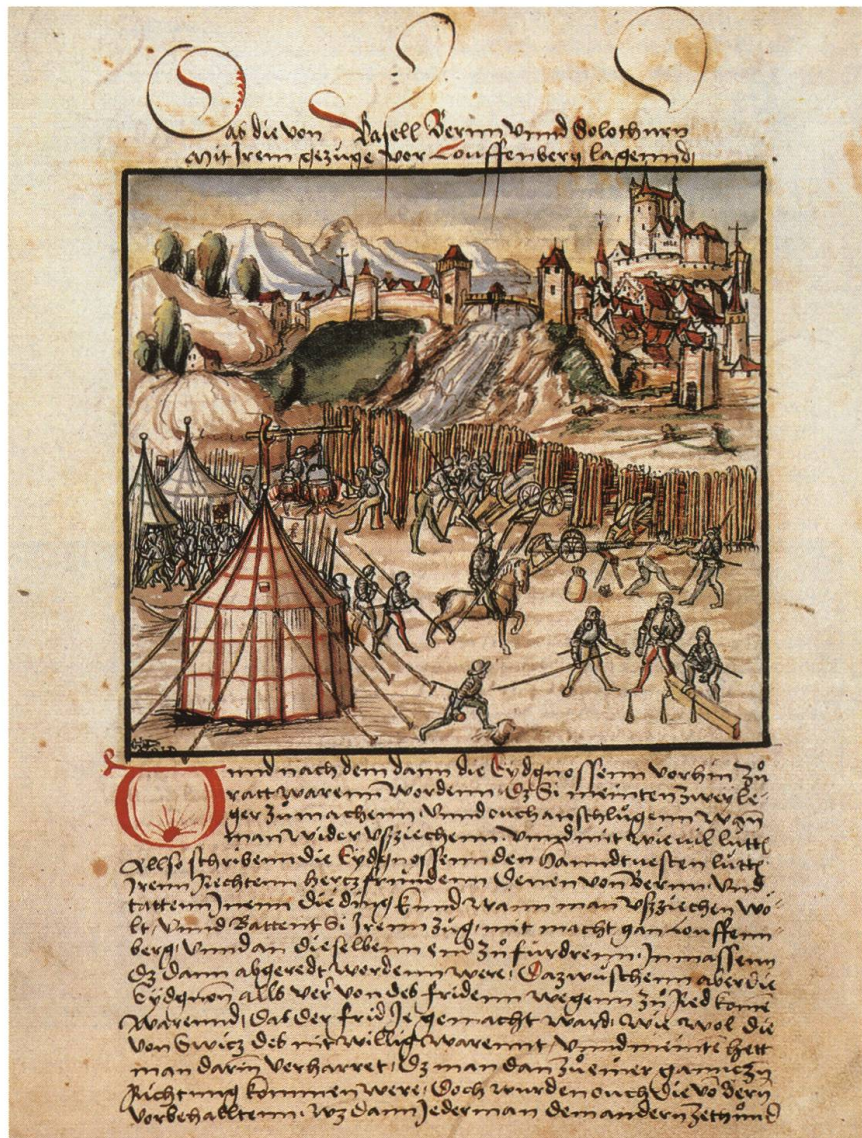 Das die von Basell Bernn vnnd Solothurn
Mit Jrem gezüge vor Louffenberg lagennd
Vnnd nach dem dann die Eydgnossenn vorhin zů
ratt warenn wordenn Dz Si meinten zwey le-
ger zů machenn vnnd ouch anschlůgenn wan
man wider vßziechenn vnnd mit wie vil lütt
Allso schribenn die Eydgnossenn den Hanndtuesten lütt
Jrenn Rechtenn hertzfründenn Denen von Bernn vnd
tattenn Jnenn die ding kund wann man vßziechen wo-
lt, vnnd Battent Si Jrenn zug mit macht gan Louffenn-
berg vnnd an dieselbenn end zů fürdrenn Jnmassenn
Dz dann abgeredt wordenn were Dazwüschenn aber die
Eydgnon als ver von des fridenn wegenn zů Red komen
warennd Das der frid Je gemacht ward wie wol die
von Swicz des nit willig warennt vnnd meinte hett
man darin verharret Dz man dan zů einer ganntzn
Richtung kommen were Doch wurden ouch die vo Bern
vorbehalltenn wz dann Jederman dem andern